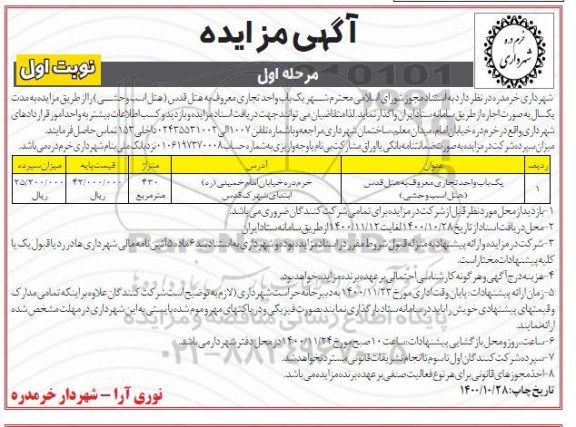 آگهی مزایده
خرم دره
شهرداری
نوبت اول
مرحله اول
شهرداری خرمدره در نظر دارد به استناد مجوز شورای اسلامی محترم شهر یک باب واحد تجاری معروف به هتل قدس (هتل اسب وحشی) را از طریق مزایده به مدت
یکسال به صورت اجاره از طریق سامانه ستاد ایران واگذار نماید. لذا متقاضیان می توانند جهت دریافت اسناد مزایده و بازدید و کسب اطلاعات بیشتر به واحد امور قراردادهای
شهرداری واقع در خرمدره خیابان امام، میدان معلم، ساختمان شهرداری مراجعه و یا شماره تلفن ۱۰۰۷ الی ۰۲۴۳۵۵۳۱۰۰۲ داخلی ۱۵۳ تماس حاصل فرمایند.
میزان سپرده شرکت در مزایده به صورت ضمانتنامه بانکی یا اوراق مشارکت بی نام یا وجه واریزی به شماره حساب ۰۱۰۶۱۹۷۳۷۰۰۰۸ نزد بانک ملی بنام شهرداری خرمدره می باشد.
ردیف عنوان آدرس متراژ قیمت پایه میزان سپرده
۱ یک باب واحد تجاری معروف به هتل قدس (هتل اسب وحشی) خرمدره خیابان امام خمینی (ره) ابتدای شهرک قدس ۴۳۰ مترمربع ۴۲/۰۰۰/۰۰۰ ریال ۲۵/۲۰۰/۰۰۰ ریال
۱- بازدید از محل مورد نظر قبل از شرکت در مزایده برای تمامی شرکت کنندگان ضروری می باشد.
۲- محل دریافت اسناد از تاریخ ۱۴۰۰/۱۰/۲۸ لغایت ۱۴۰۰/۱۱/۱۲ از طریق سامانه ستاد ایران
۳- شرکت در مزایده و ارائه پیشنهاد به منزله قبول شروط مقرر در اسناد مزایده بوده و شهرداری به استناد بند ۶ ماده ۵ آئین نامه مالی شهرداری ها در رد یا قبول یک یا
کلیه پیشنهادات مختار است.
۴- هزینه درج آگهی و هر گونه کارشناسی احتمالی بر عهده برنده مزایده خواهد بود.
۵- زمان ارائه پیشنهادات: پایان وقت اداری مورخ ۱۴۰۰/۱۱/۲۳ به دبیرخانه حراست شهرداری (لازم به توضیح است شرکت کنندگان علاوه بر اینکه تمامی مدارک
و قیمتهای پیشنهادی خویش را باید در سامانه ستاد بارگذاری نمایند بصورت فیزیکی و در پاکتهای مهر و موم شده بایستی به این شهرداری در مهلت مشخص شده
ارائه نمایند.
۶- ساعت، روز و محل بازگشایی پیشنهادات: ساعت ۱۰ صبح مورخ ۱۴۰۰/۱۱/۲۴ در محل دفتر شهردار می باشد.
۷- سپرده شرکت کنندگان اول تا سوم تا انجام تشریفات قانونی مسترد نخواهد شد.
۸- اخذ مجوزهای قانونی برای هر نوع فعالیت صنفی بر عهده برنده مزایده می باشد.
تاریخ چاپ: ۱۴۰۰/۱۰/۲۸
نوری آرا - شهردار خرمدره
پایگاه اطلاع رسانی مناقصه و مزایده